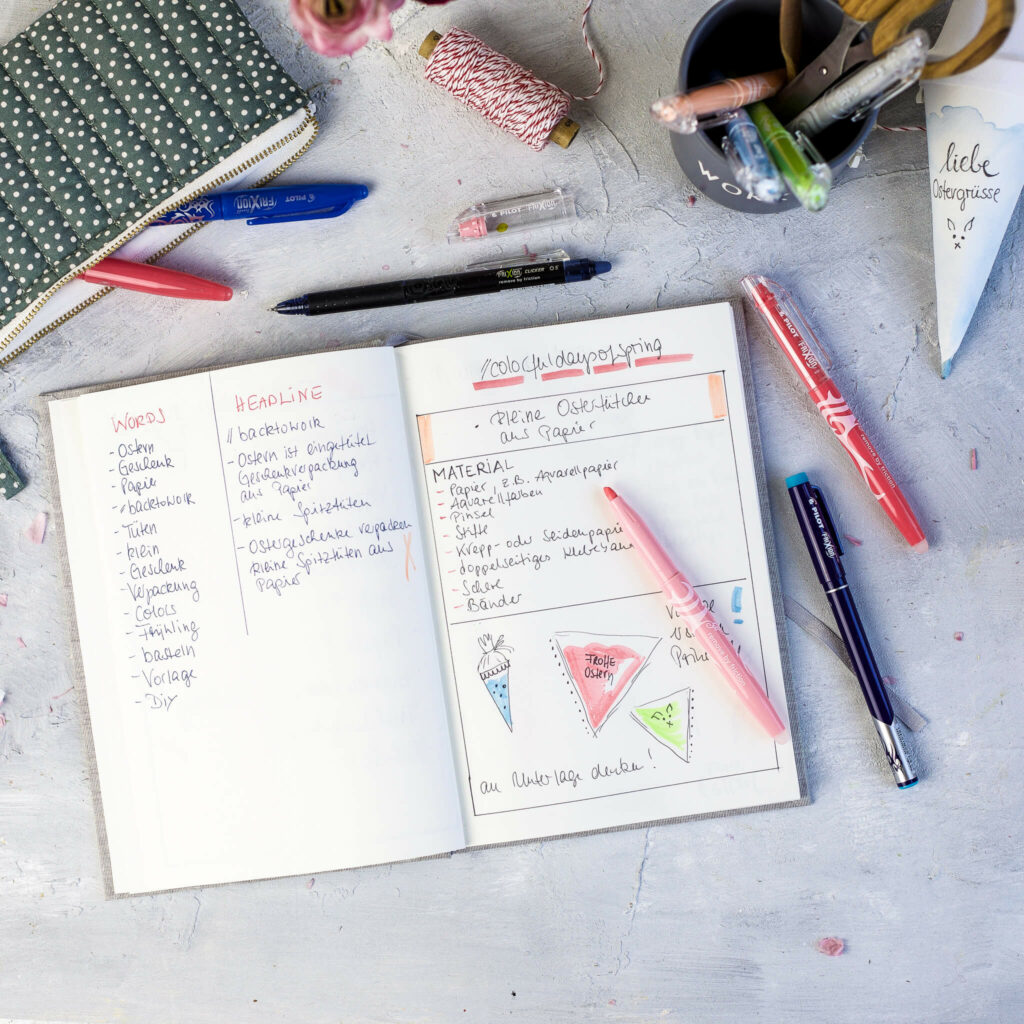 WORDS
- Ostern
- Geschenk
- Papier
- #backtowork
- Tüten
- klein
- Geschenk
- Verpackung
- Colors
- Frühling
- basteln
- Vorlage
- DIY
HEADLINE
# backtowork
- Ostern ist eingetütet
Geschenkverpackung
aus Papier
- kleine Spitztüten
- Ostergeschenke verpacken
kleine Spitztüten aus
Papier
#colorfuldaysofspring
• Kleine Ostertüten
aus Papier
MATERIAL
- Papier, z.B. Aquarellpapier
- Aquarellfarben
- Pinsel
- Stifte
- Krepp- oder Seidenpapier
- doppelseitiges
- Schere
- Bänder
FROHE
Ostern
an Unterlage denken!
liebe
Ostergrüsse
WO
FRIXION
PILOT
PILOT FRIXION
FRIXION CLICKER 0.5
remove by friction
PILOT FRIXION
remove by friction
PILOT FRIXION
remove by friction